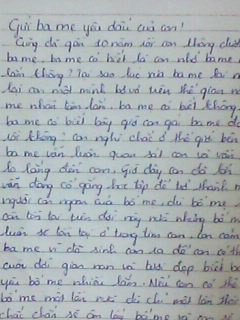 Gửi ba mẹ yêu dấu của con!
Cũng đã gần 10 năm rồi con không được
ba mẹ, ba mẹ có biết là con nhớ ba mẹ
lắm không? Tại sao lúc xưa ba mẹ lại
lại con một mình bơ vơ trên thế gian
mẹ nhiều lắm lắm. Ba mẹ có biết không
ba mẹ có biết bây giờ con gái ba mẹ đã
rồi không? Con nghĩ chắc ở thế giới bên
ba mẹ vẫn luôn quan sát con và vẫn
lo lắng đến con. Giờ đây con đã lớn
vẫn đang cố gắng học tập để trở thành
người con ngoan của bố mẹ, dù bố mẹ
còn tồn tại trên đời này nữa nhưng bố mẹ
luôn sẽ tồn tại ở trong tim con. Con cảm
ba mẹ vì đã sinh con ra để con có
cuộc đời gian nan và tươi đẹp biết
yêu bố mẹ nhiều lắm. Nếu con có thể
bố mẹ một lần nữa dù chỉ một lần thôi
chắc chắn sẽ ôm lấy bố mẹ và con sẽ